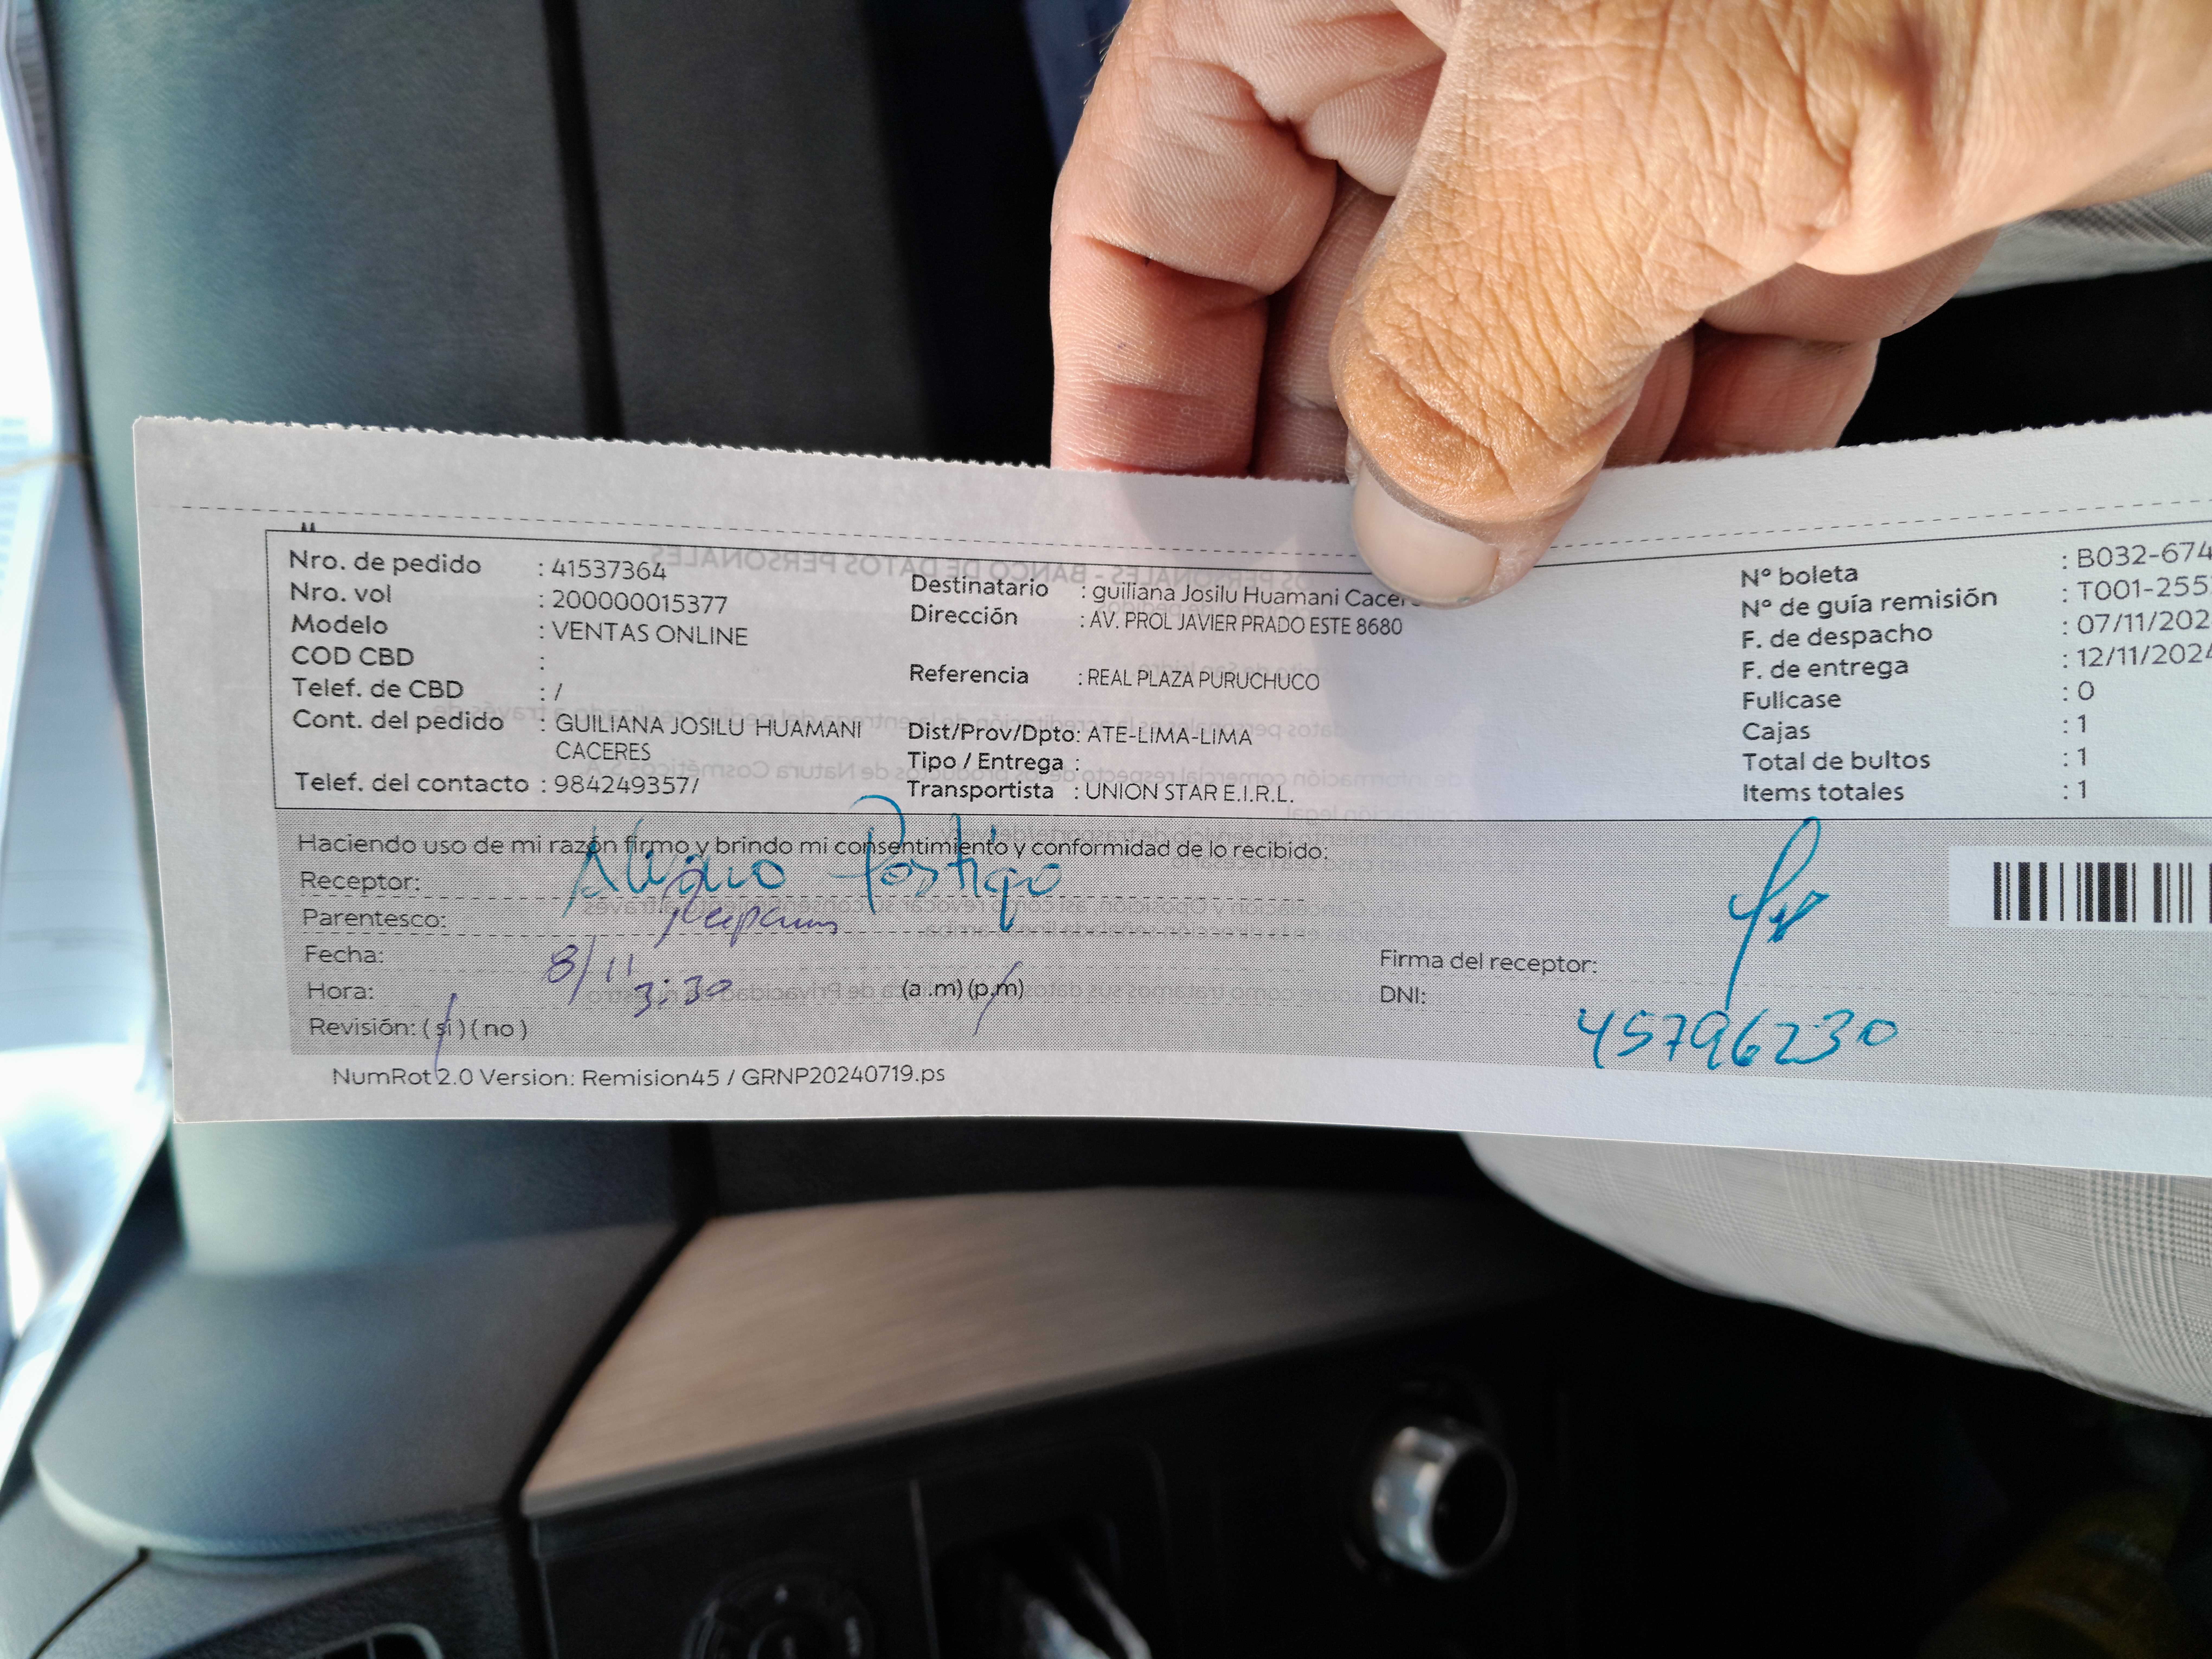 Nro. de pedido : 41537364
Nro. vol : 200000015377
Modelo : VENTAS ONLINE
COD CBD :
Telef. de CBD : /
Cont. del pedido : GUILIANA JOSILU HUAMANI
CACERES
Telef. del contacto : 984249357/
Destinatario : guiliana Josilu Huamani Cacer
Dirección : AV. PROL JAVIER PRADO ESTE 8680
Referencia : REAL PLAZA PURUCHUCO
Dist/Prov/Dpto: ATE-LIMA-LIMA
Tipo / Entrega :
Transportista : UNION STAR E.I.R.L.
N° boleta : B032-674
N° de guía remisión : T001-255
F. de despacho : 07/11/202
F. de entrega : 12/11/2024
Fullcase : 0
Cajas : 1
Total de bultos : 1
Items totales : 1
Haciendo uso de mi razón firmo y brindo mi consentimiento y conformidad de lo recibido:
Receptor: Alvaro Postigo
Parentesco:
Fecha: 8/11
Hora: 3:30 (a .m) (p.m)
Revisión: ( si ) ( no )
Firma del receptor:
DNI: 45796230
NumRot 2.0 Version: Remision45 / GRNP20240719.ps